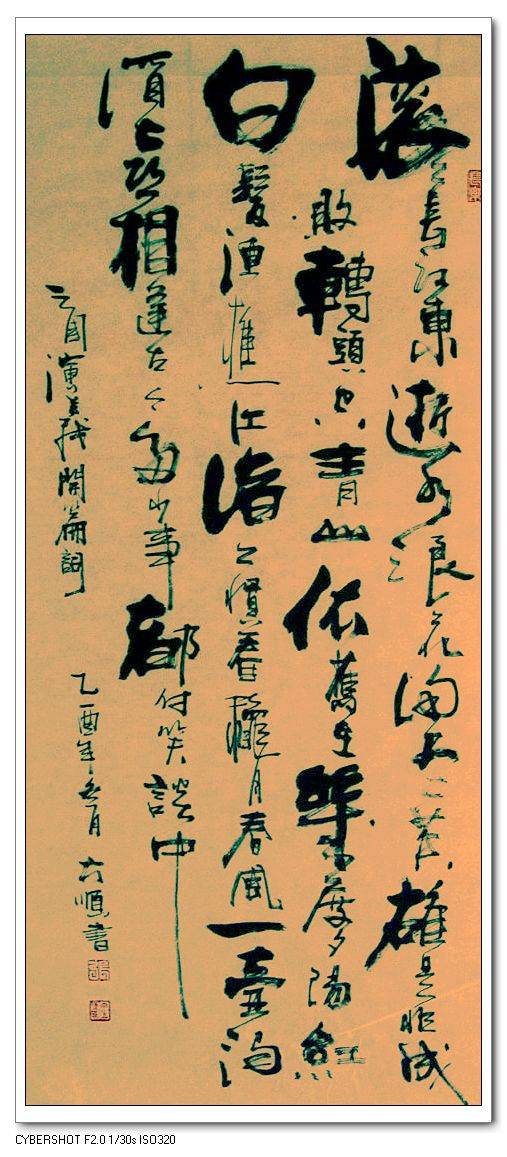 滾滾長江東逝水浪花淘盡英雄是非成
敗轉頭空青山依舊在幾度夕陽紅
白髮漁樵江渚上慣看龝月春風一壺濁
酒喜相逢古今多少事都付笑談中
三国演義開篇詞 乙酉年 月 六順書
CYBERSHOT F2.0 1/30s ISO320